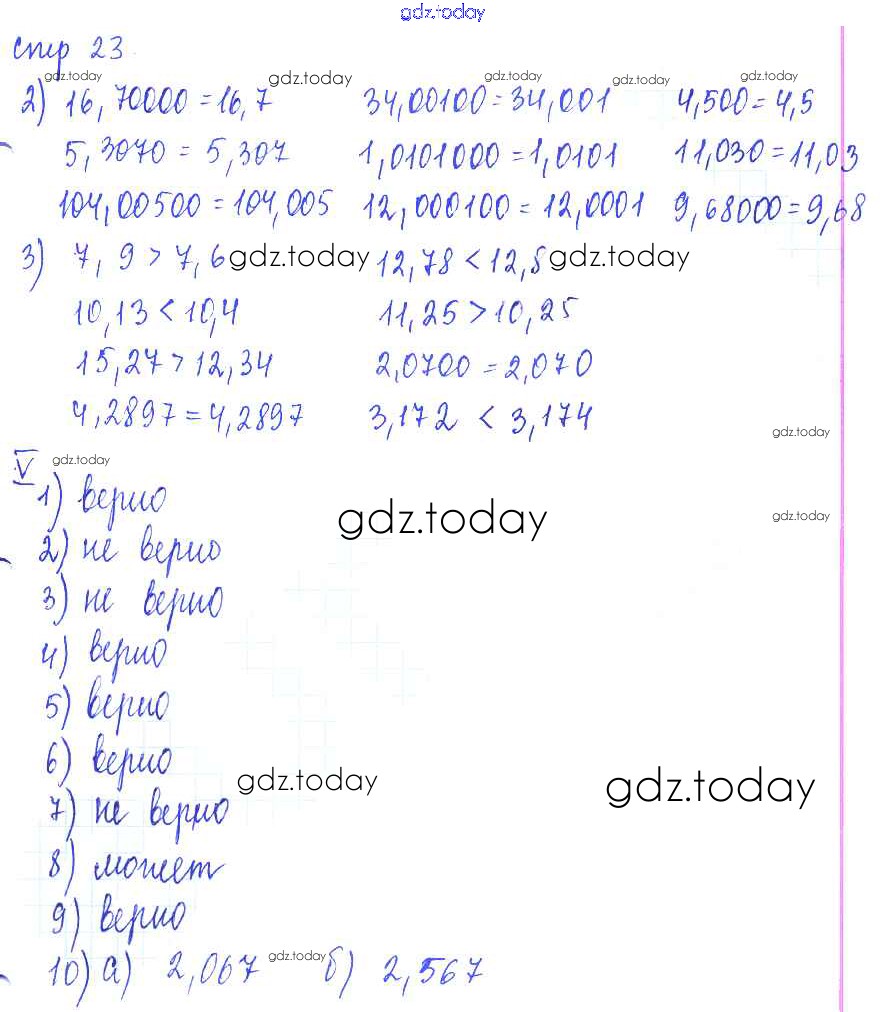 gdz.today
стр 23
gdz.today gdz.today gdz.today gdz.today gdz.today
2) 16,70000 = 16,7 34,00100 = 34,001 4,500 = 4,5
5,3070 = 5,307 1,0101000 = 1,0101 11,030 = 11,03
104,00500 = 104,005 12,000100 = 12,0001 9,68000 = 9,68
3) 7,9 > 7,6 gdz.today 12,78 < 12,8 gdz.today
10,13 < 10,4 11,25 > 10,25
15,27 > 12,34 2,0700 = 2,070
4,2897 = 4,2897 3,172 < 3,174
gdz.today
V gdz.today
1) верно
gdz.today gdz.today
2) не верно
3) не верно
4) верно
5) верно
6) верно
gdz.today gdz.today
7) не верно
8) может
9) верно
10) а) 2,067 gdz.today б) 2,567